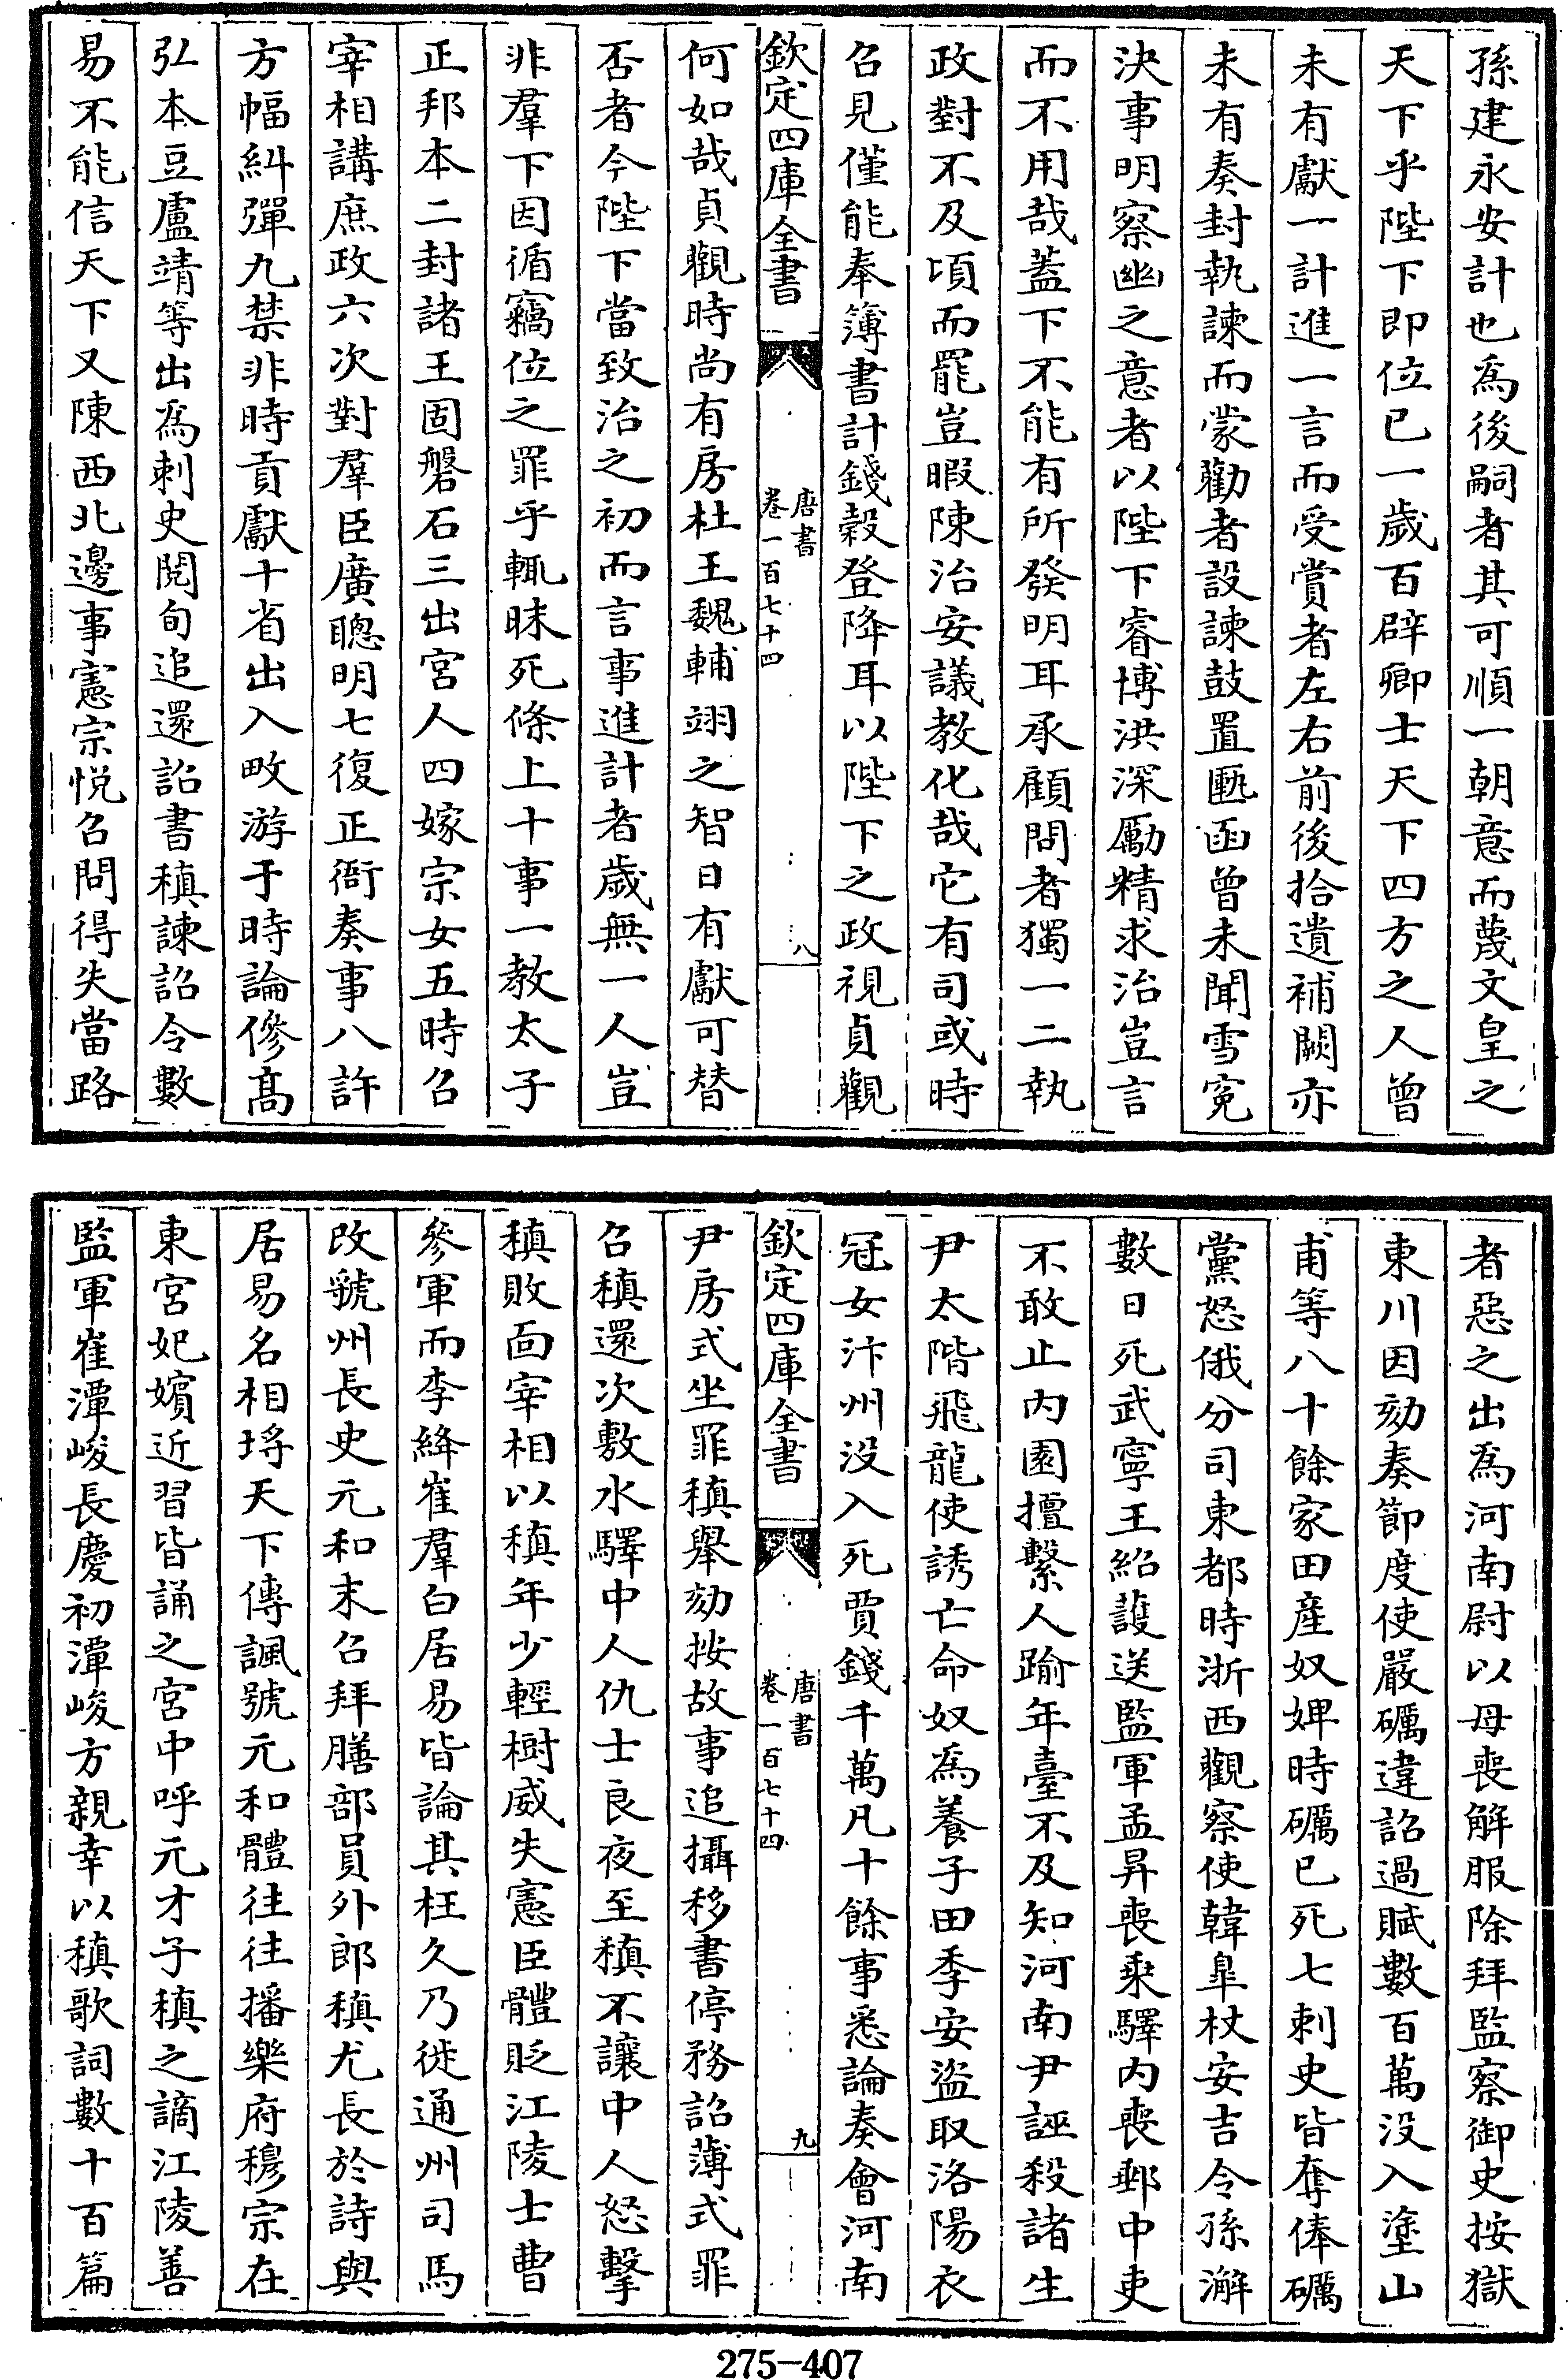 孫建永安計也為後嗣者其可順一朝意而蔑文皇之
天下乎陛下即位已一歲百辟卿士天下四方之人曾
未有獻一計進一言而受賞者左右前後拾遺補闕亦
未有奏封執諫而蒙勸者設諫鼓置匭函曾未聞雪冤
決事明察幽之意者以陛下睿博洪深勵精求治豈言
而不用哉蓋下不能有所發明耳承顧問者獨一二執
政對不及頃而罷豈暇陳治安議教化哉它有司或時
召見僅能奉簿書計錢榖登降耳以陛下之政視貞觀
欽定四庫全書
唐書
卷一百七十四
八
何如哉貞觀時尚有房杜王魏輔翊之智日有獻可替
否者今陛下當致治之初而言事進計者歲無一人豈
非羣下因循竊位之罪乎輒昧死條上十事一教太子
正邦本二封諸王固磐石三出宮人四嫁宗女五時召
宰相講庶政六次對羣臣廣聰明七復正衙奏事八許
方幅糾彈九禁非時貢獻十省出入畋游于時論傪高
弘本豆盧靖等出為刺史閱旬追還詔書稹諫詔令數
易不能信天下又陳西北邊事憲宗悅召問得失當路
者惡之出為河南尉以母喪解服除拜監察御史按獄
東川因劾奏節度使嚴礪違詔過賦數百萬没入塗山
甫等八十餘家田產奴婢時礪已死七刺史皆奪俸礪
黨怒俄分司東都時浙西觀察使韓臯杖安吉令孫澥
數日死武寧王紹護送監軍孟昇喪乘驛内喪郵中吏
不敢止内園擅繫人踰年臺不及知河南尹誣殺諸生
尹太階飛龍使誘亡命奴為養子田季安盜取洛陽衣
冠女汴州没入死賈錢千萬凡十餘事悉論奏會河南
欽定四庫全書
唐書
卷一百七十四
九
尹房式坐罪稹舉劾按故事追攝移書停務詔薄式罪
召稹還次敷水驛中人仇士良夜至稹不讓中人怒擊
稹敗面宰相以稹年少輕樹威失憲臣體貶江陵士曹
參軍而李絳崔羣白居易皆論其枉久乃徙通州司馬
改虢州長史元和末召拜膳部員外郎稹尤長於詩與
居易名相埒天下傳諷號元和體往往播樂府穆宗在
東宮妃嬪近習皆誦之宮中呼元才子稹之謫江陵善
監軍崔潭峻長慶初潭峻方親幸以稹歌詞數十百篇
275-407